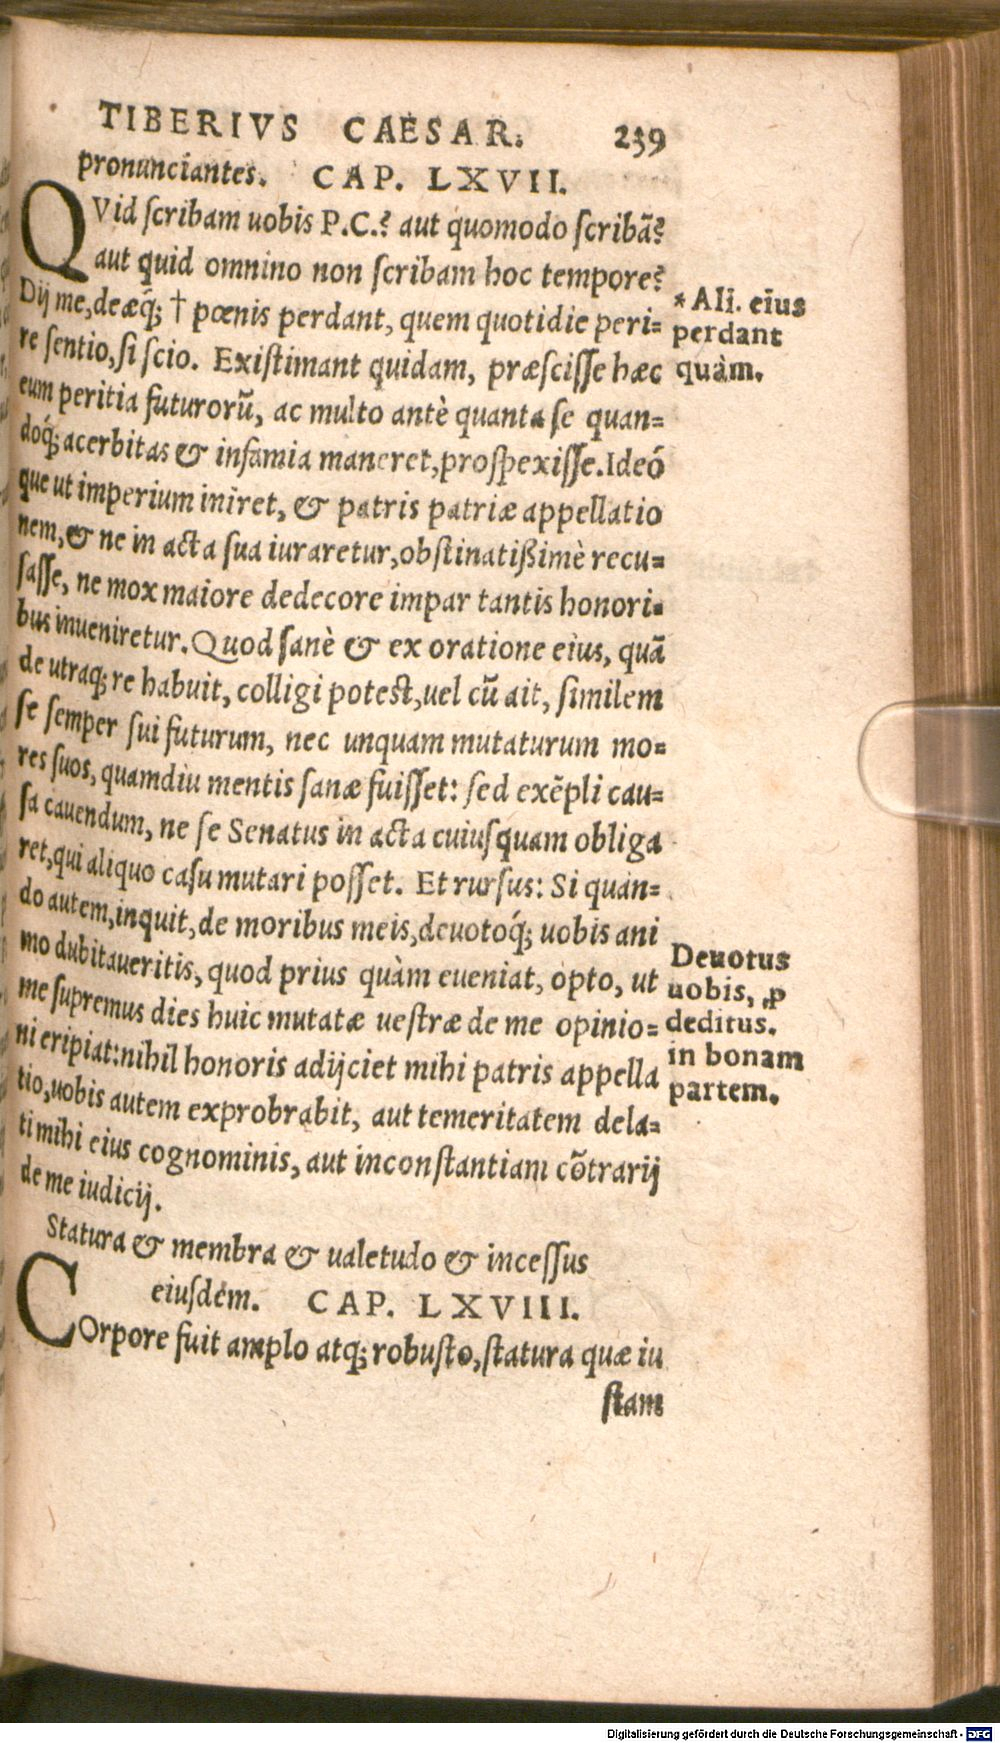 TIBERIVS CAESAR. 239
pronunciantes. CAP. LXVII.
QVid scribam uobis P.C.? aut quomodo scribã?
aut quid omnino non scribam hoc tempore?
Dij me, deæq́; † pœnis perdant, quem quotidie peri-
re sentio, si scio. Existimant quidam, præscisse hæc
eum peritia futurorũ, ac multo antè quanta se quan-
doq́; acerbitas & infamia maneret, prospexisse. Ideó
que ut imperium iniret, & patris patriæ appellatio
nem, & ne in acta sua iuraretur, obstinatißimè recu-
sasse, ne mox maiore dedecore impar tantis honori-
bus inueniretur. Quod sanè & ex oratione eius, quã
de utraq; re habuit, colligi potest, uel cũ ait, similem
se semper sui futurum, nec unquam mutaturum mo-
res suos, quamdiu mentis sanæ fuisset: sed exẽpli cau-
sa cauendum, ne se Senatus in acta cuiusquam obliga
ret, qui aliquo casu mutari posset. Et rursus: Si quan-
do autem, inquit, de moribus meis, deuotoq́; uobis ani
mo dubitaueritis, quod prius quàm eueniat, opto, ut
me supremus dies huic mutatæ uestræ de me opinio-
ni eripiat: nihil honoris adijciet mihi patris appella
tio, uobis autem exprobrabit, aut temeritatem dela-
ti mihi eius cognominis, aut inconstantiam cõtrarij
de me iudicij.
Statura & membra & ualetudo & incessus
eiusdem. CAP. LXVIII.
COrpore fuit amplo atq; robusto, statura quæ iu
stam
* Ali. eius
perdant
quàm.
Deuotus
uobis, ꝓ
deditus.
in bonam
partem.
Digitalisierung gefördert durch die Deutsche Forschungsgemeinschaft - DFG